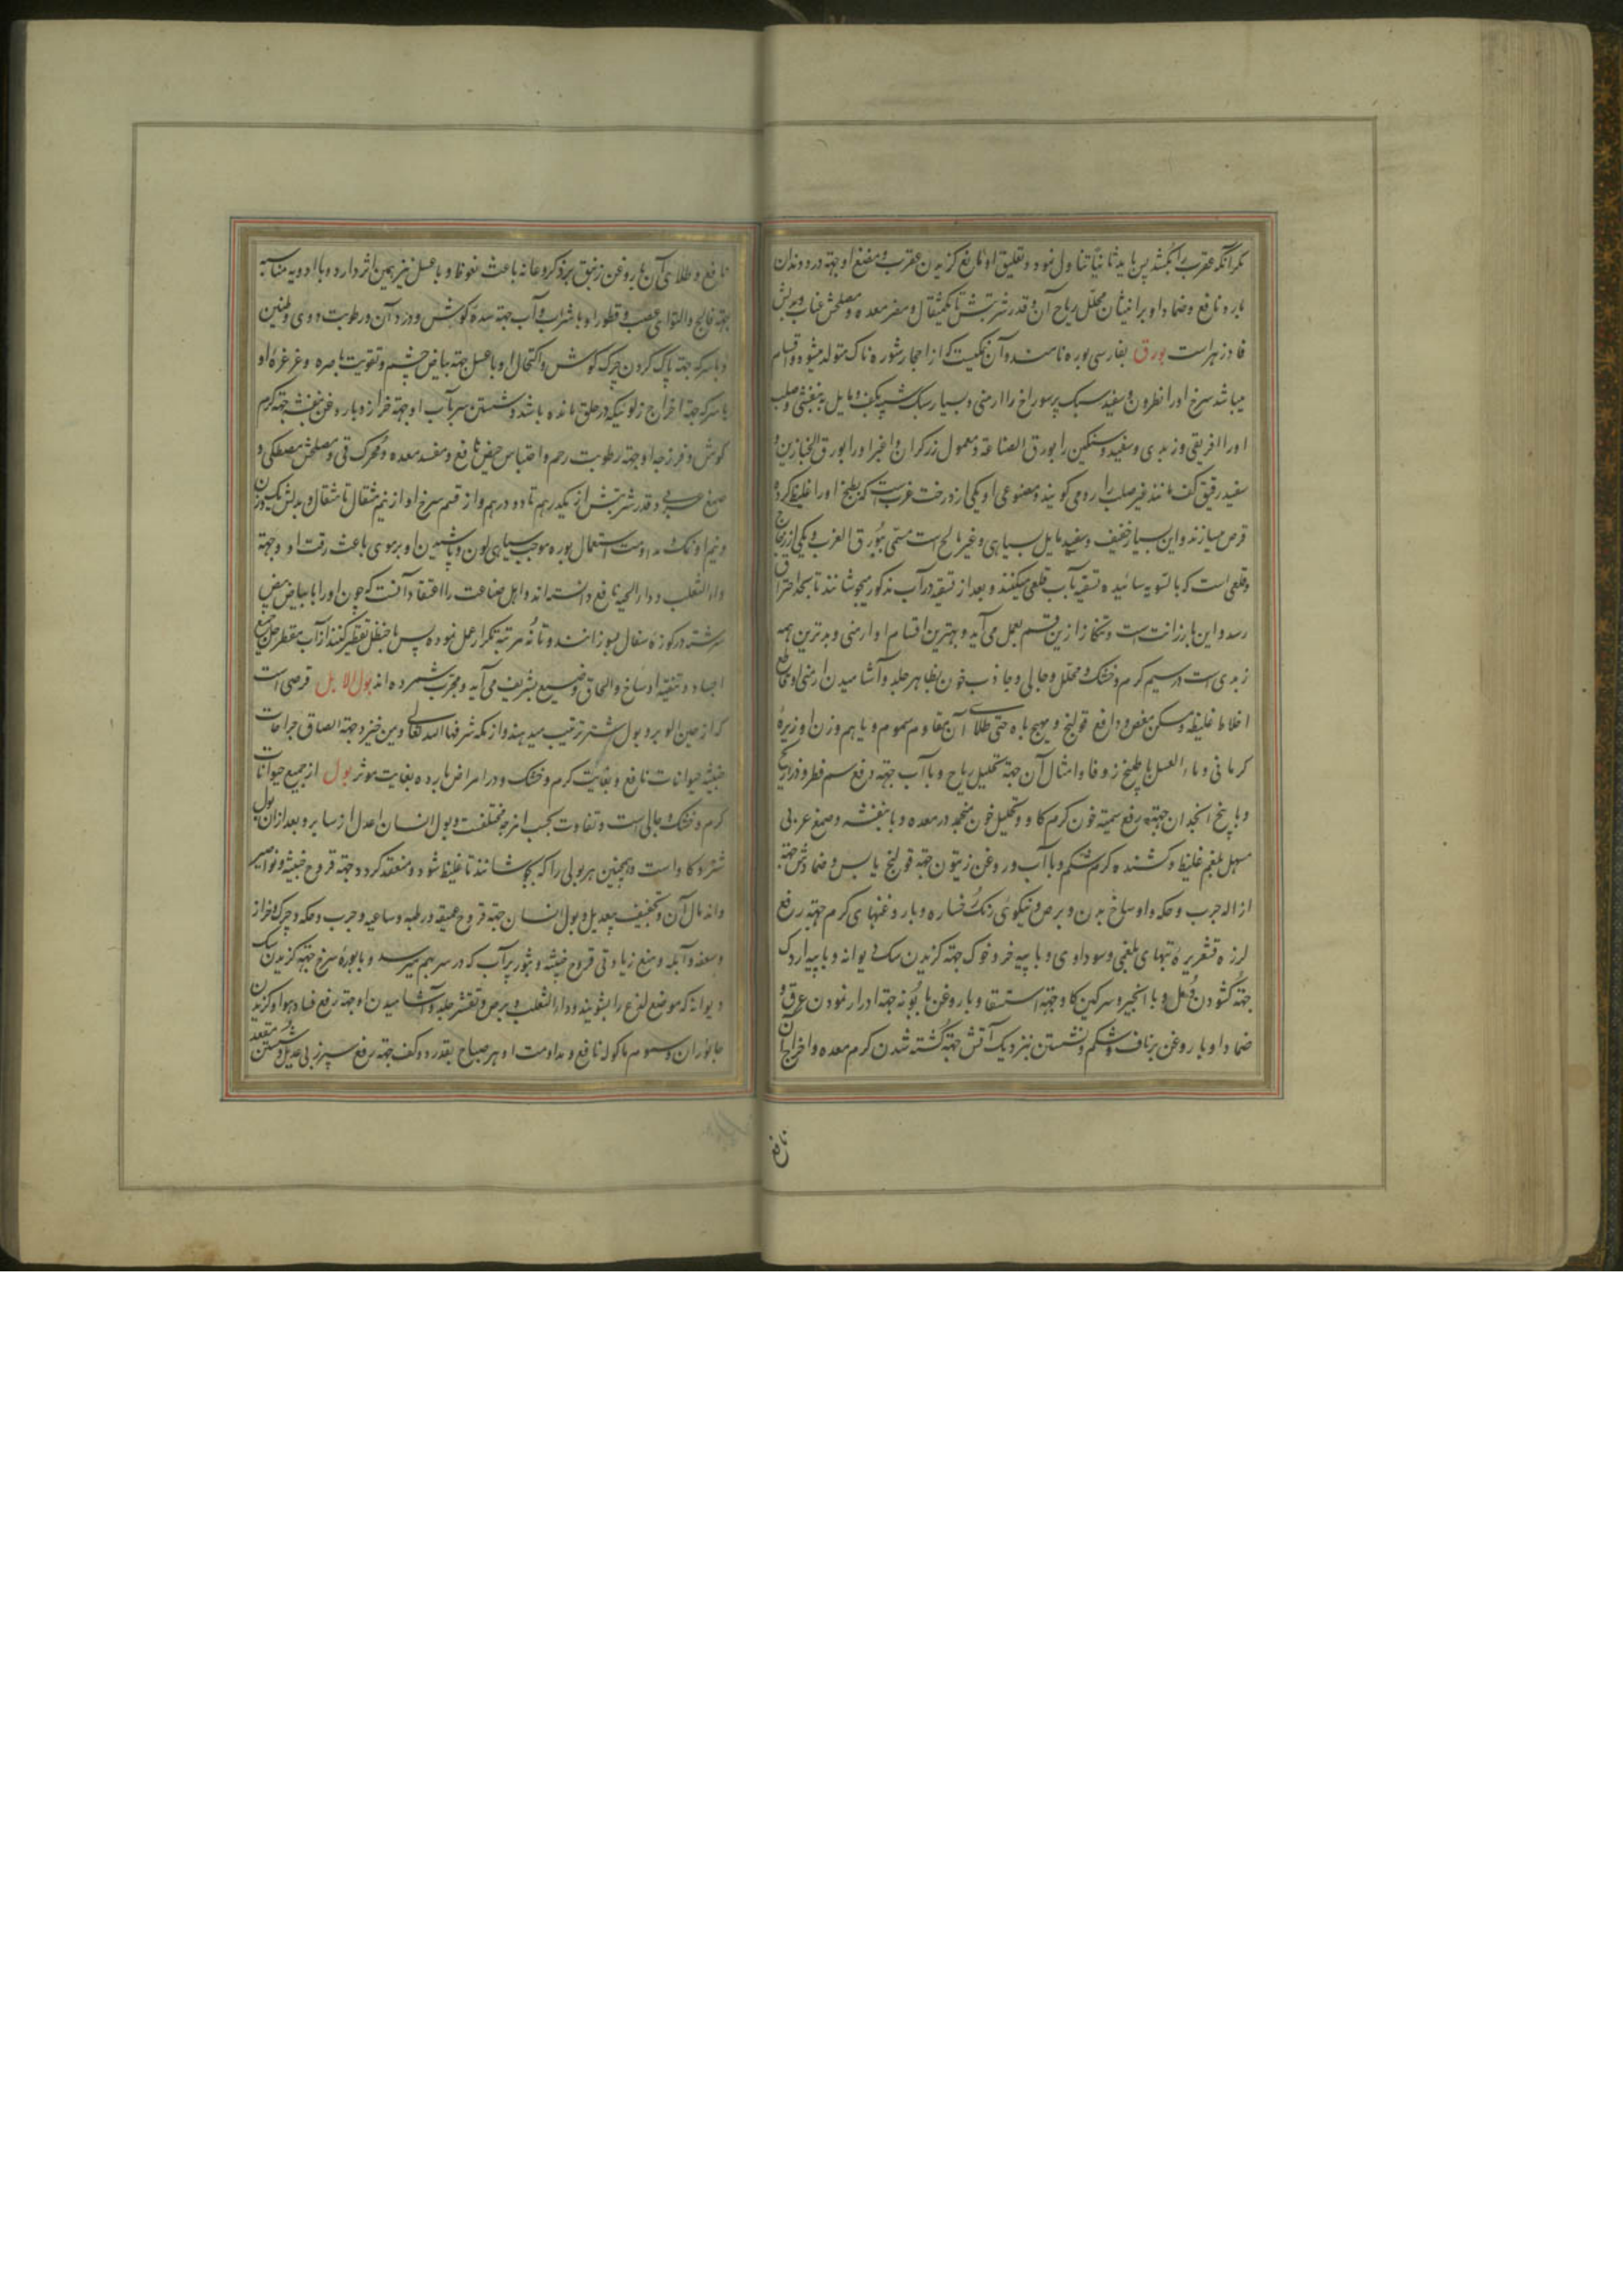 مکر آنکه عقرب را بکشد پس باید ثانیا تناول نمود و تعلیق او نافع کزیدن عقرب و مضغ او جهته درد دندان
بارد نافع و ضماد او برانثیان محلل ریاح آن و قدر شربتش تا یکمثقال و مضر معده و مصلحش عناب و بدلش
فادزهر است بورق بفارسی بوره نامند و آن نمکیست که از احجار شوره ناک متولد میشود و اقسام
میباشد سرخ او را نطرون و سفید سبک پر سوراخ را ارمنی و بسیار سبک شبیه بکف و مایل ببنفشی و صلب
او را افریقی و زبدی و سفید و سنکین را بورق الصناعة و معمول زرکران و اغبر او را بورق الخبازین و
سفید رقیق کف مانند غیر صلب را رومی کویند و مصنوعی او یکی از درخت غرب است که بطبخ او را غلیظ کرده
قرص میسازند و این بسیار خفیف و سفید مایل بسیاهی و غیر مالح است مسمی ببورق الغرب و یکی از زجاج
و قلعی است که بالسویه سائیده تسقیه بآب قلعی میکنند و بعد از تسقیه در آب مذکور میجوشانند تا بحد احتراق
رسد و این با رزانت است و تنکار ازین قسم بعمل می آید و بهترین اقسام او ارمنی و بدترین همه
زبدی است در سیم کرم و خشک و محلل و جالی و جاذب خون بظاهر جلد و آشامیدن ارمنی او قاطع
اخلاط غلیظه و مسکن مغص و دافع قولنج و مهیج باه حتی طلاءی آن مقاوم سموم و با هم وزن او زیرهٔ
کرمانی و ماء العسل با طبیخ زوفا و امثال آن جهته تحلیل ریاح و با آب جهته رفع سم فطر و ذراریح
و با بیخ انجدان جهته رفع سمیته خون کرم کاو و تحلیل خون منجمد در معده و با بنفشه و صمغ عربی
مسهل بلغم غلیظ و کشنده کرم شکم و با آب و روغن زیتون جهته قولنج یابس و ضمادش جهته
ازاله جرب و حکه و اوساخ بدن و برص و نیکوئی رنک رخساره و با روغنهای کرم جهته رفع
لرزه قشعریرهٔ تبهای بلغمی و سوداوی و با پیه خر و خوک جهته کزیدن سک دیوانه و با پیه اردک
جهته کشودن دمل و با انجیر و سرکین کاو جهته استسقا و با روغن بابونه جهته ادرار نمودن عرق و
ضماد او با روغن بر ناف و شکم و نشستن بنزدیک آتش جهته کشته شدن کرم معده و اخراج آن
نافع
نافع و طلای آن با روغن زنبق بر ذکر و عانه باعث نعوظ و با عسل نیز همین اثر دارد و با ادویه مناسبه
جهته فالج و التوای عصب و قطور او با شراب و آب جهته سده کوش و درد آن و رطوبت و دوی و طنین
و با سرکه جهته پاک کردن چرک کوش و اکتحال او با عسل جهته بیاض چشم و تقویت باصره و غرغرهٔ او
با سرکه جهته اخراج زلوئیکه در حلق مانده باشد و شستن سر بآب او جهته خراز و با روغن بنفشه جهته کرم
کوش و فرزجه او جهته رطوبت رحم و احتباس حیض نافع و مفسد معده و محرک قی و مصلحش مصطکی و
صمغ عربی و قدر شربتش از یکدرهم تا دو درهم و از قسم سرخ او از نیم مثقال تا مثقال و بدلش یک وزن
و نیم او نمک و مداومت استعمال بوره موجب سیاهی لون و پاشیدن او بر موی باعث رقت او و جهته
داء الثعلب و داء الحیه نافع دانسته اند و اهل صناعت را اعتقاد آنست که چون او را با بیاض بیض
سرشته در کوزه سفال بسوزانند و تا نه مرتبه تکرار عمل نموده پس با حنظل تقطیر کنند از آب مقطر حل جمیع
اجساد و تنقیه اوساخ و الحاق وضیع بشریف می آید و مجرب شمرده اند بول الابل قرصی است
که از صبن الوبر و بول شتر ترتیب میدهند و از مکه شرفها الله تعالی و یمن خیزد جهته الصاق جراحات
خبیثه حیوانات نافع و بغایت کرم و خشک و در امراض بارده بغایت موثر بول از جمیع حیوانات
کرم و خشک و جالی است و تفاوت بحسب امزجه مختلفست و بول انسان اعدل از سایر و بعد از ان بول
شتر و کاو است و همچنین هر بولی را که بجوشانند تا غلیظ شود و منعقد کردد جهته قروح خبیثه و نواصیر
و اندمال آن و تجفیف بیعدیل و بول انسان جهته قروح عمیقه و رطبه و ساعیه و جرب و حکه و چرک و خراز
و سعفه و آبله و منع زیادتی قروح خبیثه و بثور پر آب که در سر بهم میرسد و با بورهٔ سرخ جهته کزیدن سک
دیوانه که موضع لذع را بشویند و داء الثعلب و برص و تقشر جلد و آشامیدن او جهته رفع فساد هوا و کزیدن
جانوران و سموم ماکوله نافع و مداومت او هر صباح بقدر دو کف جهته رفع سپرز بی عدیل و شستن مقعد